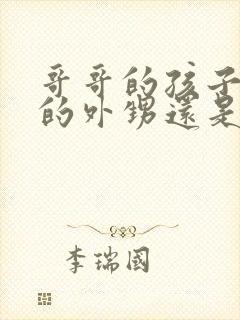 哥哥的孩子
的外甥還是
李瑞國